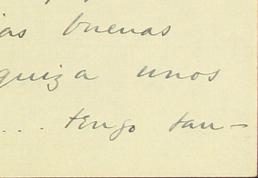 as buenas
quiza unos
... tengo tan-